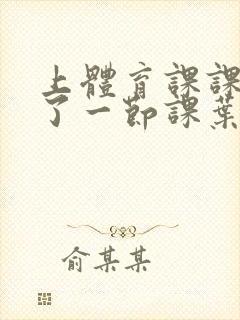 上體育課課
了一節課葉
俞某某